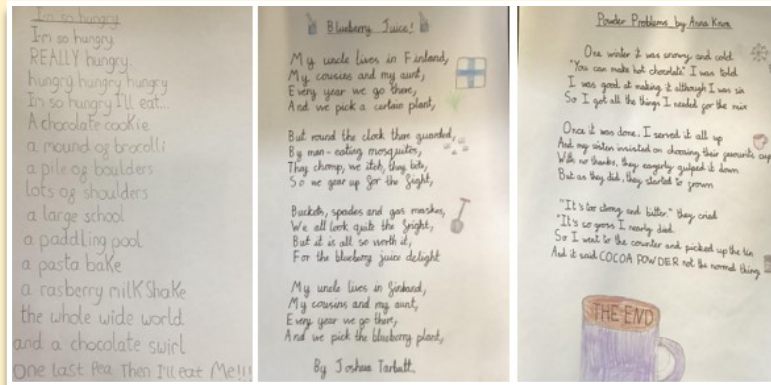 I'm so hungry
I'm so hungry.
REALLY hungry.
hungry hungry hungry
I'm so hungry I'll eat...
A chocolate cookie
a mound of brocolli
a pile of boulders
lots of shoulders
a large school
a paddling pool
a pasta bake
a rasberry milkshake
the whole wide world
and a chocolate swirl
one last pea Then I'll eat Me!!!
Blueberry Juice!
My uncle lives in Finland,
My cousins and my aunt,
Every year we go there,
And we pick a certain plant,
But round the clock there guarded,
By man-eating mosquitos,
They chomp, we itch, they bite,
So we gear up for the fight,
Buckets, spades and gas maskes,
We all look quite the fright,
But it is all so worth it,
For the blueberry juice delight
My uncle lives in finland,
My cousins and my aunt,
Every year we go there,
And we pick the blueberry plant,
By Joshua Tarbutt.
Powder Problems by Anna Knox
One winter it was snowy and cold
"You can make hot chocolate" I was told
I was good at making it although I was six
So I got all the things I needed for the mix
Once it was done, I served it all up
And my sisters insisted on choosing their favourite cup
With no thanks, they eagerly gulped it down
But as they did, they started to frown
"It's too strong and bitter," they cried
"It's so gross I nearly died.
So I went to the counter and picked up the tin
And it said COCOA POWDER not the normal thing
THE END